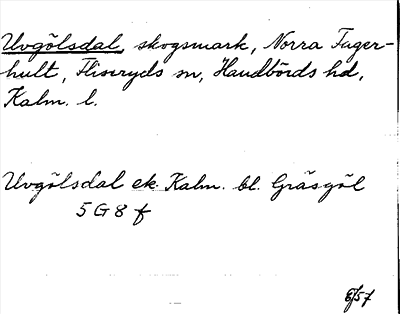 Uvgölsdal, skogsmark, Norra Fager-
hult, Fliseryds sn, Handbörds hd,
Kalm. l.
Uvgölsdal ek. Kalm. bl. Gräsgöl
5 G 8 f